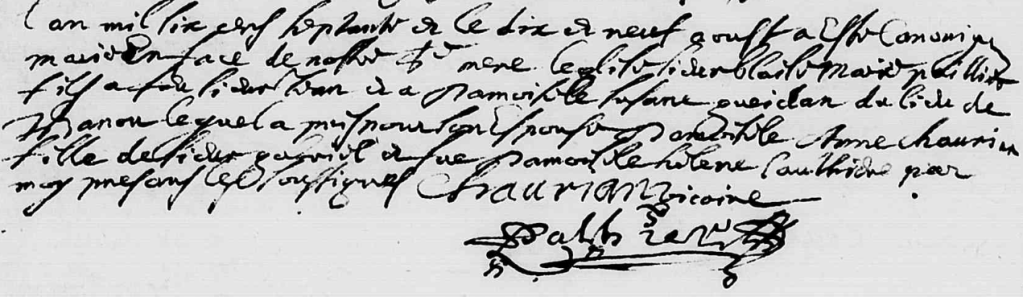 Lan mil six cens septante et le dix et neuf aoust a esté canoniqu
marié en face de nostre Ste mere leglise sieur blaise marie
fils a feu sieur Jean et a damoiselle susane gueidan du lieu de
lequel a pris pour son Espouse damoiselle Anne chaurian
fille de sieur gabriel et feue damoiselle helene par
moy presans les soussignes Chaurian vicaire